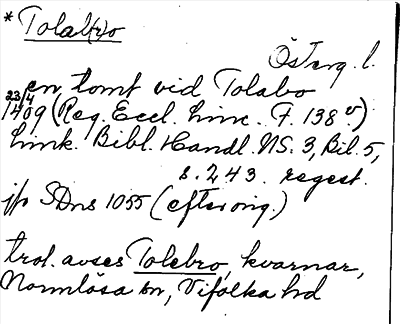 * Tolal(r)o
Österg. l.
en tomt vid Tolabo
23/4
1409 (Reg. Eccl. Linc. F. 138 v)
Link. Bibl. Handl. NS. 3, Bil. 5,
s. 243. regest.
jfr SDns 1055 (efter orig.)
trol. avses Tolebro, kvarnar,
Normlösa sn, Vifolka hd